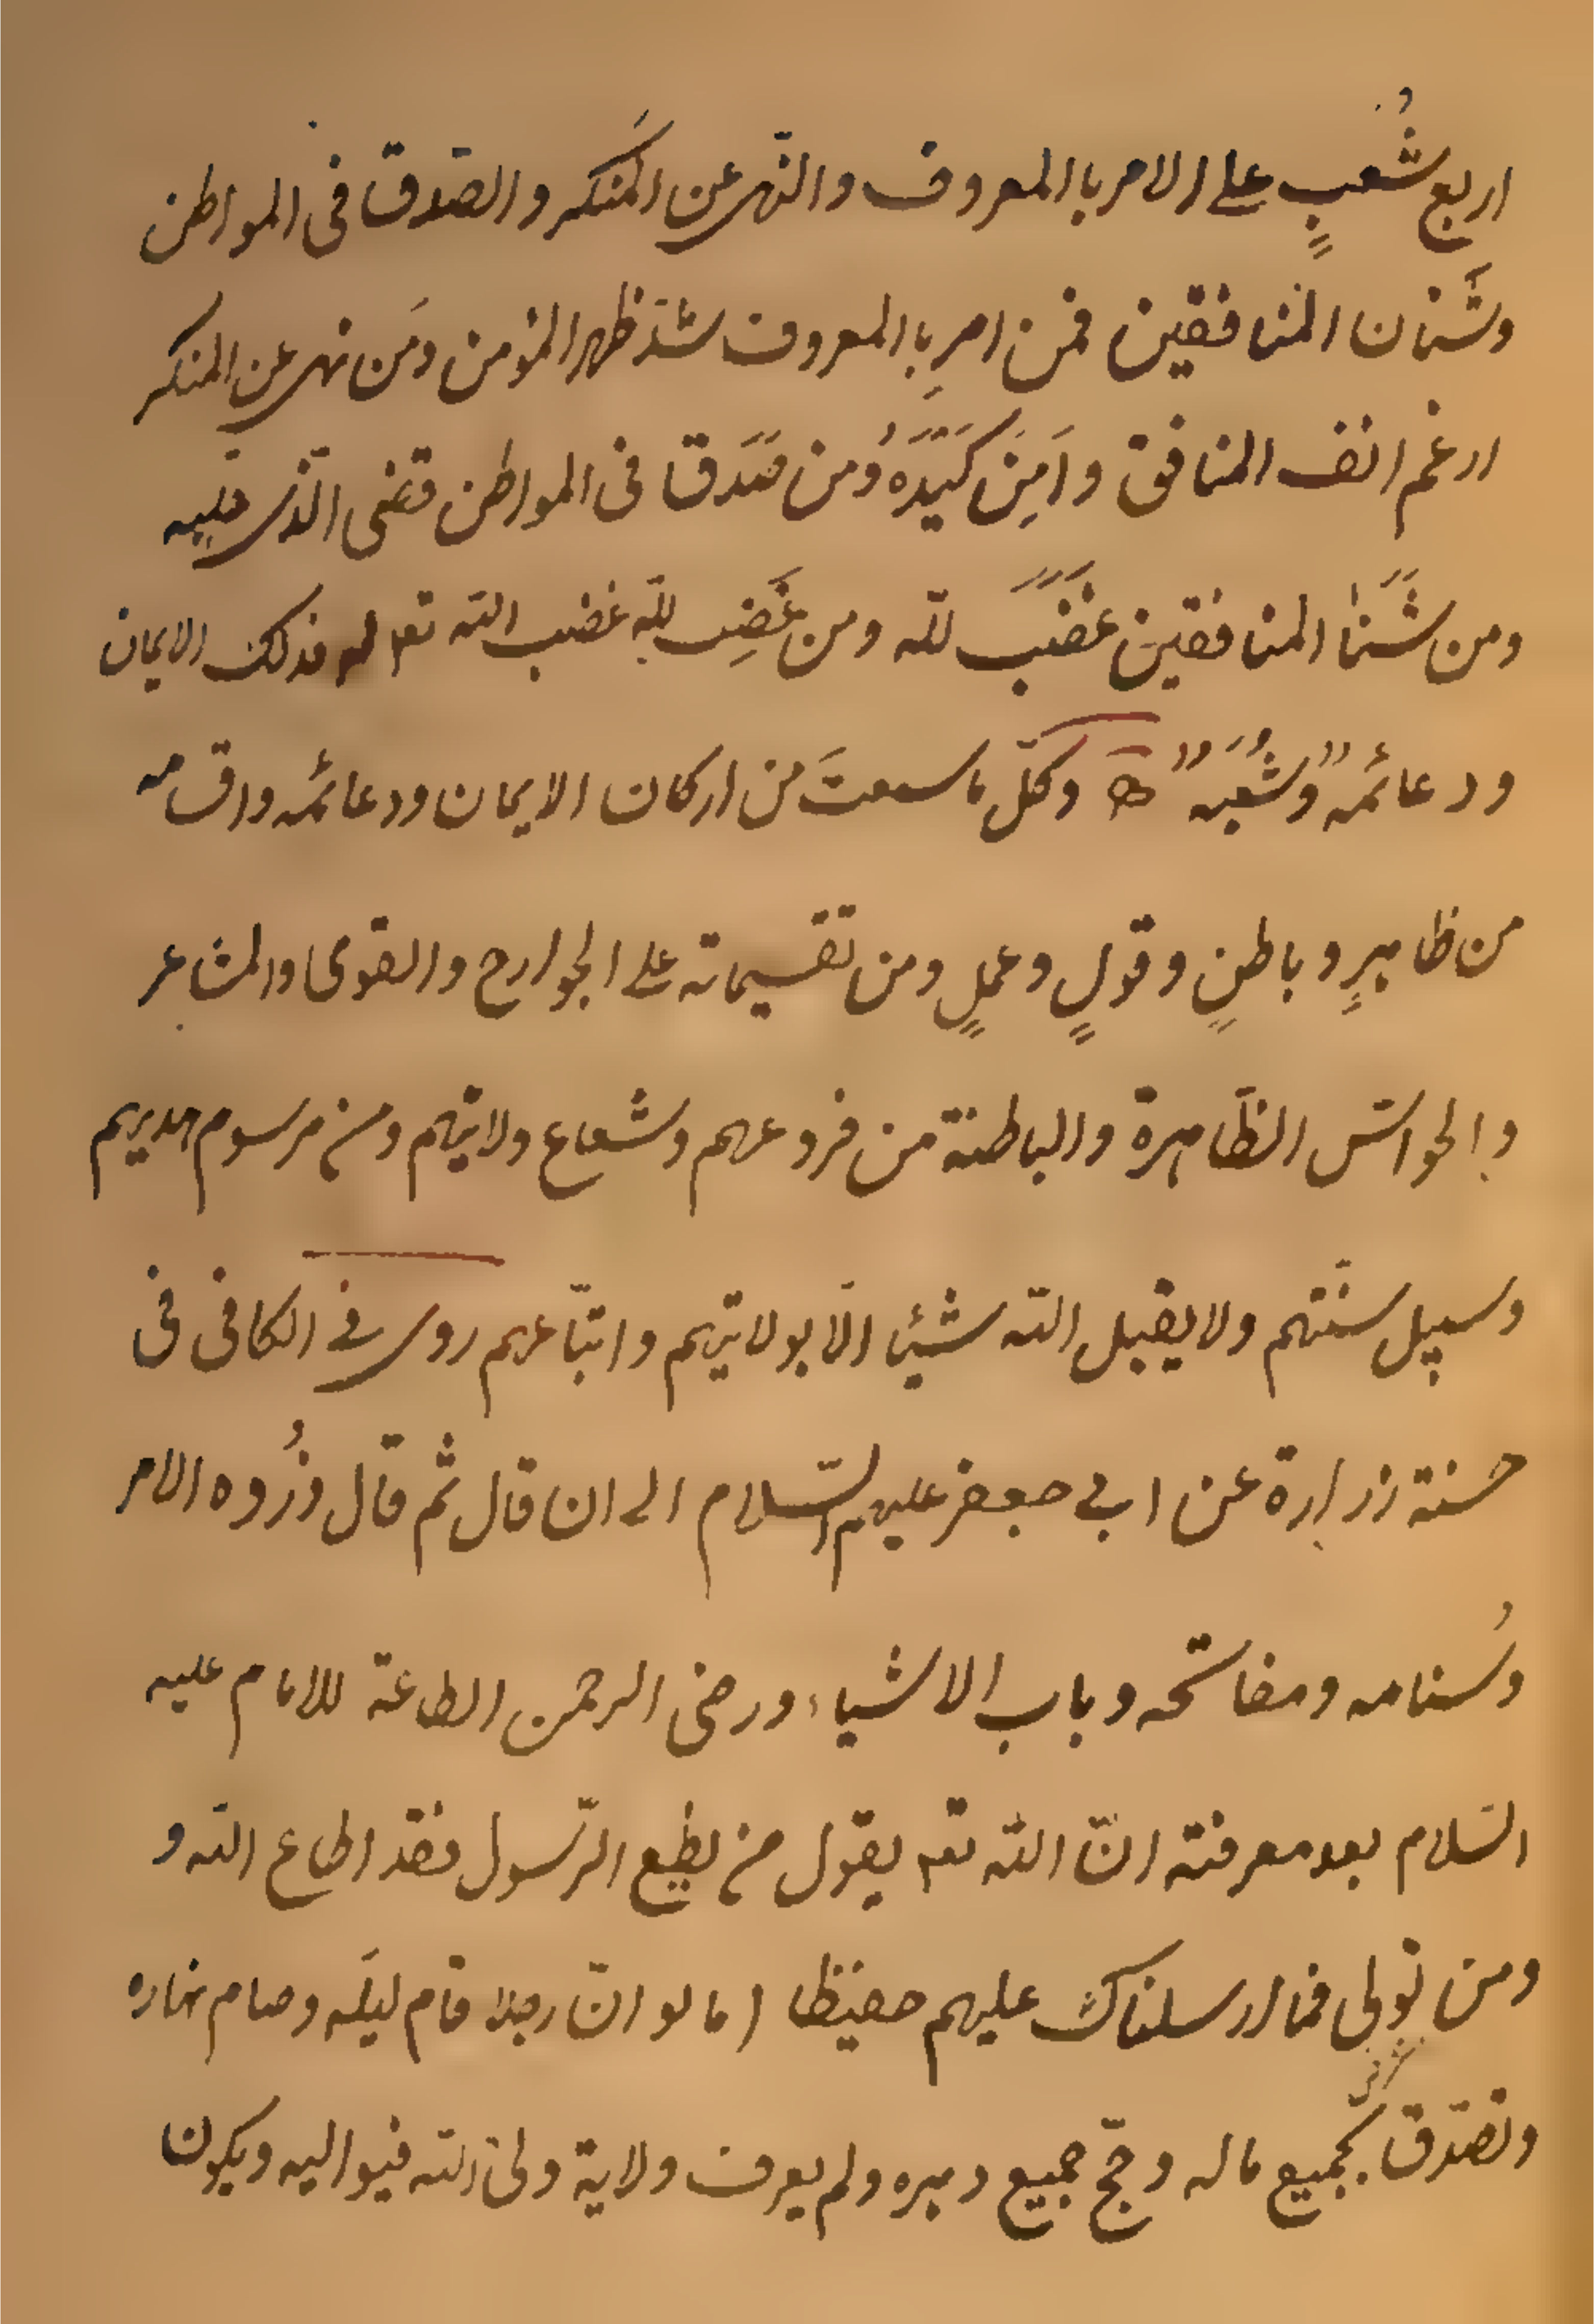 اربع شُعبٍ على الامر باالمعروف والنّهى عن المَنكر والصّدق فى المواطن
وشَنان المنافقين فمن امرِ باالمعروف شدّ ظهر المؤمن ومَن نهى عن المنكر
ارغم انف المنافق واَمِنَ كَيَدَهُ ومن صَدَق فى المواطن قضى الّذى عليه
ومن شَنَا المنافقين غضَبَ للّه ومن غَضِب للّه غضب اللّه تعا له فذلك الايمان
ودعائمه وشُعَبه وكلّ ما سمعتَ من اركان الايمان ودعائمه واقسامه
من ظاهرٍ وباطنٍ وقولٍ وعملٍ ومن تقسيماته على الجوارح والقوى والمشاعر
والحواسّ الظّاهرة والباطنة من فروعهم وشعاع ولايتهم ومن مرسوم هديهم
وسبيل سنّتهم ولا يقبل اللّه شيئا الّا بولايتهم واتبّاعهم روى فى الكافى فى
حسنة زرارة عن ابى جعفر عليهم السّلام الى ان قال ثم قال وذُروه الامر
وسُنامه ومفاتحه وباب الاشياء ورضى الرحمن الطاعة للامام عليه
السّلام بعد معرفته انّ اللّه تعه يقول من يطيع الرّسول فقد اطاع اللّه و
ومن تولى فما ارسلناك عليهم حفيظا اما لو انّ رجلا قام ليلَه وصام نهاره
وتصدّق بجميع ماله وحجّ جميع دهره ولم يعرف ولاية ولىّ اللّه فيواليه ويكون